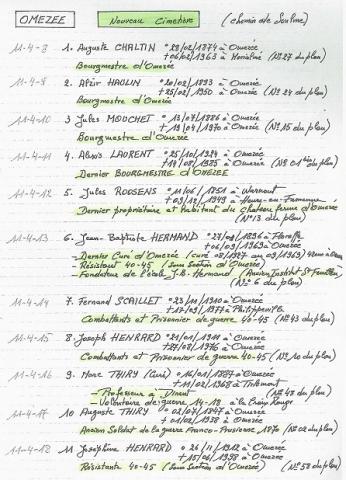 OMEZEE Nouveau Cimetière (chemin de Soulme)
11-4-8 1. Auguste CHALTIN ° 28/02/1874 à Omezée
+ 06/02/1963 à (N°27 du plan)
Bourgmestre d'Omezée
11-4-9 2. HAULIN ° 20/02/1893 à Omezée
+ 25/02/1950 à Omezée (N°24 du plan)
Bourgmestre d'Omezée
11-4-10 3 Jules MOUCHET ° 13/07/1886 à Omezée
+ 19/04/1970 à Omezée (N°15 du plan)
Bourgmestre d'Omezée
11-4-11 4. Alexis LAURENT ° 25/10/1924 à Omezée
+ 14/08/1985 à Omezée (N° 0 du plan)
Dernier BOURGMESTRE D'OMEZEE
11-4-12 5. Jules ROOSENS ° 11/06/1851 à
+ 03/12/1949 à Heure-en-Famenne
Dernier propriétaire et habitant du château ferme d'Omezée
(N°13 du plan)
11-4-13 6. Jean-Baptiste HERMAND ° 27/09/1896 à
+ 06/03/1969 à Omezée
- Dernier Curé d'Omezée (curé 08/1927 au 03/1969)
- Résistant 40-45 (Sous Section d'Omezée)
- Fondateur de l'école J.B. Hermand (Ancien Institut St
(N° 6 du plan)
11-4-14 7. Fernand SCAILLET ° 23/11/1910 à Omezée
+ 17/09/1977 à Philippeville
Combattants et Prisonnier de guerre 40-45 (N°43 du plan)
11-4-15 8. Joseph HENRARD ° 21/01/1911 à Omezée
+ 27/08/1976 à Omezée
Combattants et Prisonnier de guerre 40-45 (N°10 du plan)
11-4-16 9. Marc THIRY (Curé) ° 16/01/1887 à Omezée
+ 11/02/1968 à
- Professeur à Dinant (N°48 du plan)
- Volontaire de guerre 14-18 à la Croix Rouge
11-4-17 10 Auguste THIRY ° 02/07/1847 à Omezée
+ 01/02/1938 à Omezée
Ancien Soldat de la guerre Franco-Prussienne 1870 (N°02 du plan)
11-4-18 11 Joséphine HENRARD ° 26/11/1912 à Omezée
+ 15/06/1998 à Omezée
Résistante 40-45 (Sous Section d'Omezée) (N°58 du plan)